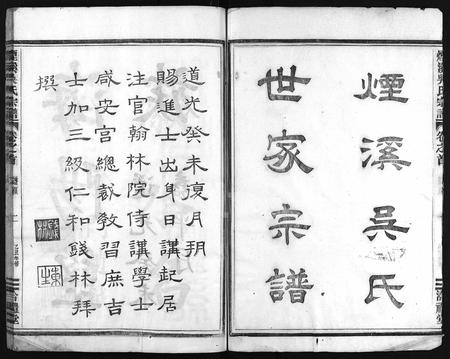 煙溪吳氏
世家宗譜
道光癸未復月玥
賜進士出身日講起居
注官翰林院侍講學士
咸安宮總裁教習庶吉
士加三級仁和錢林拜
撰